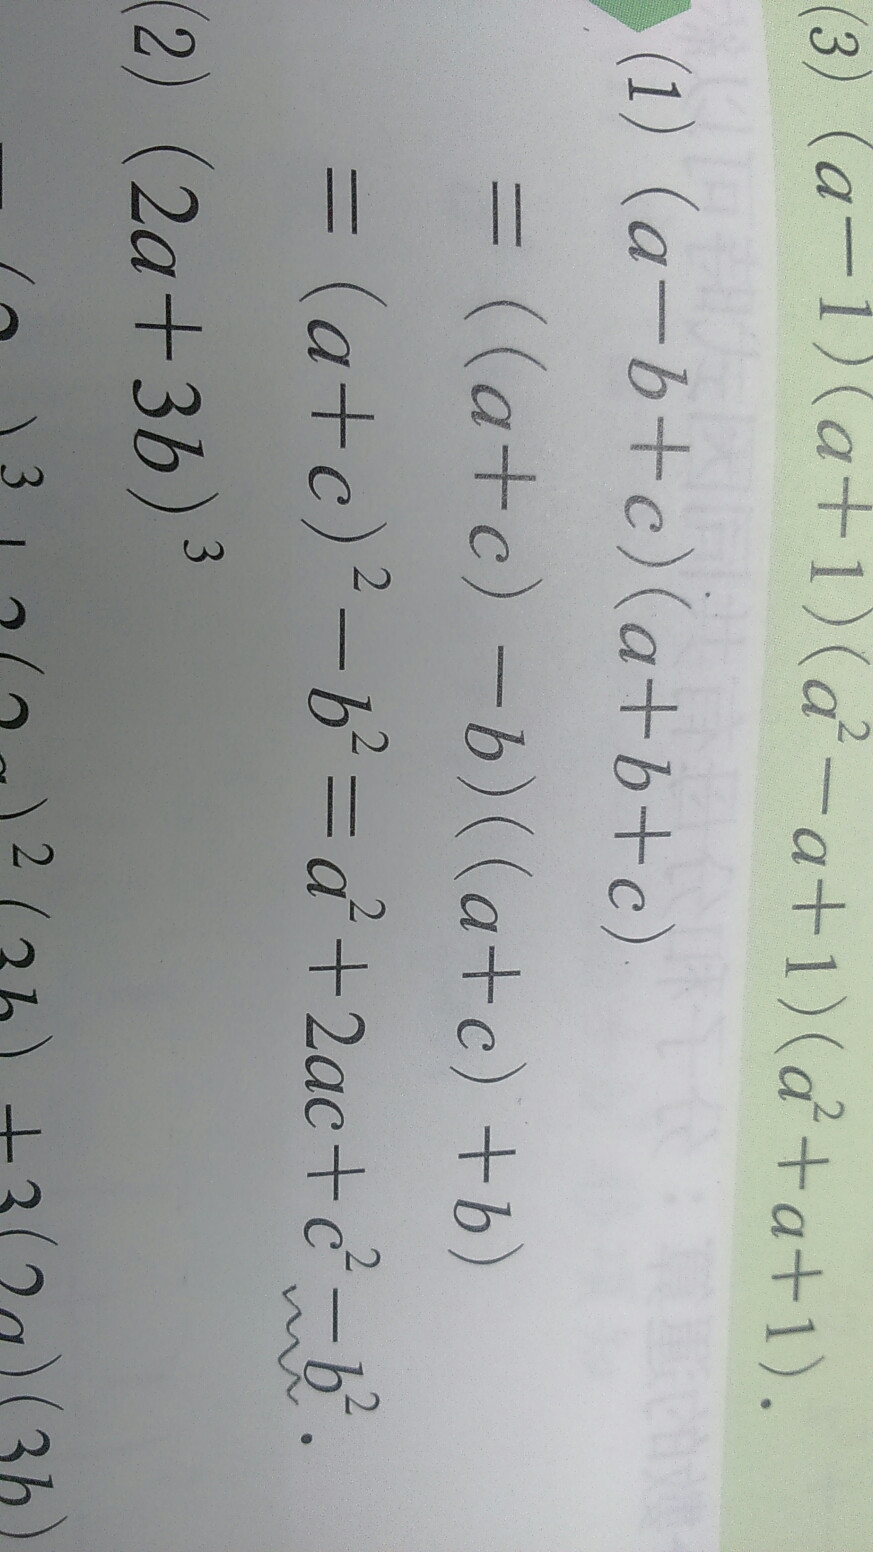 (3) (a−1)(a+1)(a²−a+1)(a²+a+1).
(1) (a−b+c)(a+b+c)
=((a+c)−b)((a+c)+b)
=(a+c)²−b²=a²+2ac+c²−b².
(2) (2a+3b)³
(3b)+3(2a)(3b)